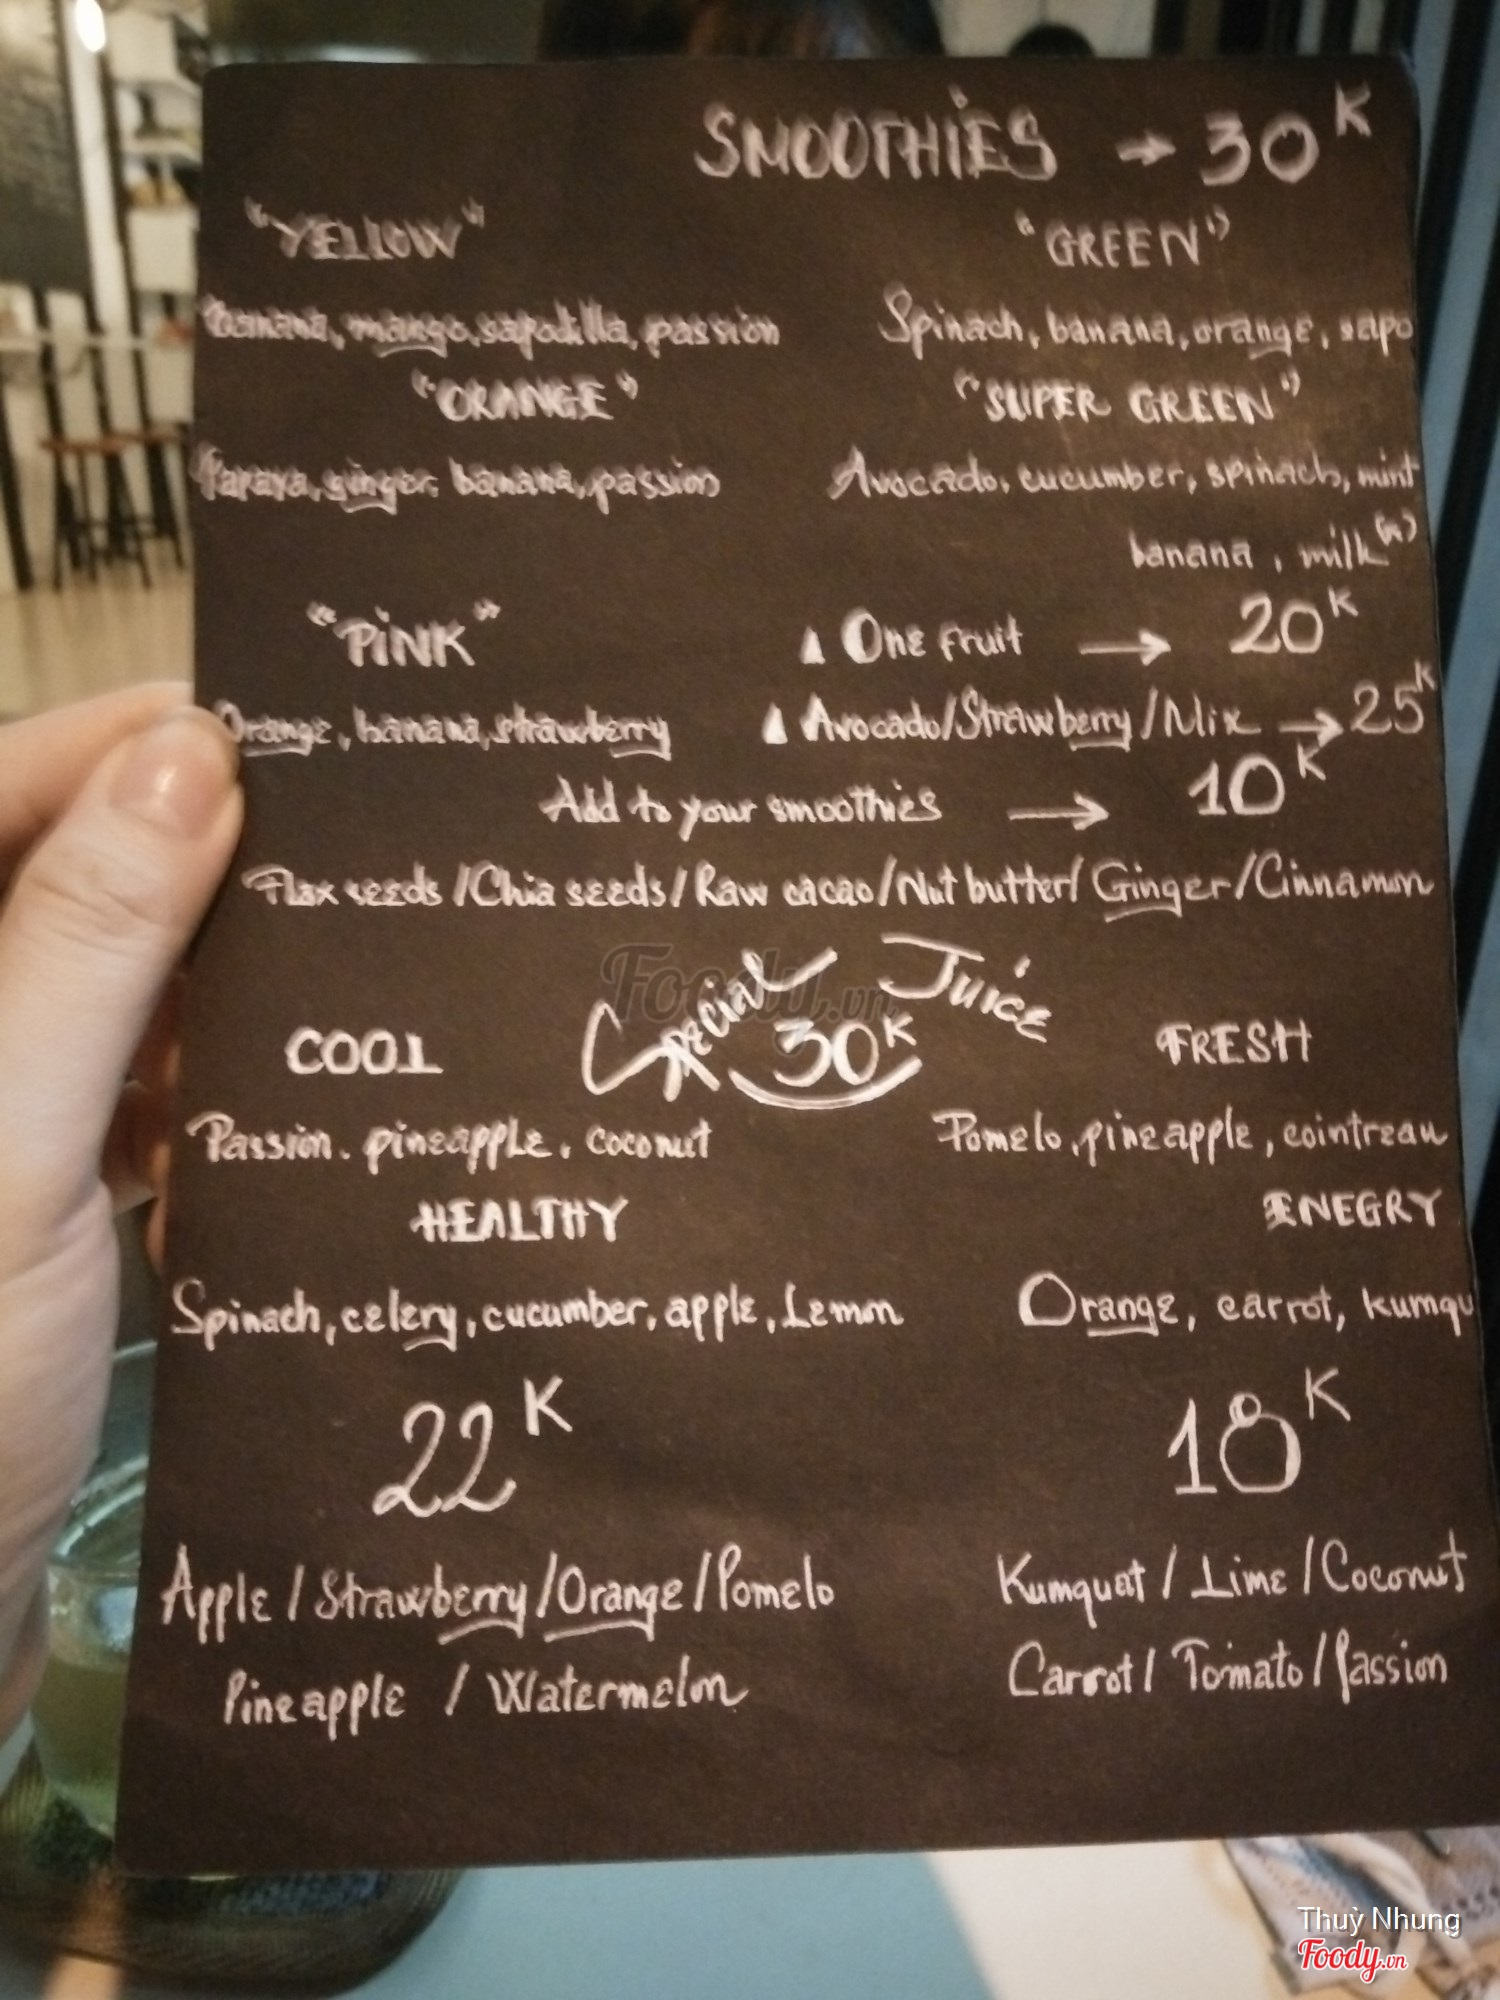 SMOOTHIES → 30K
"YELLOW" "GREEN"
Banana, mango, sapodilla, passion Spinach, banana, orange, sapo
"ORANGE" "SUPER GREEN"
Papaya, ginger, banana, passion Avocado, cucumber, spinach, mint
banana, milk
"PINK" ▲ One fruit → 20K
Orange, banana, strawberry ▲ Avocado/Strawberry/Mix → 25K
Add to your smoothies → 10K
Flax seeds / Chia seeds / Raw cacao / Nut butter / Ginger / Cinnamon
Special Juice
30K
COOL FRESH
Passion. pineapple, coconut Pomelo, pineapple, cointreau
HEALTHY ENEGRY
Spinach, celery, cucumber, apple, Lemon Orange, carrot, kumqu
22K 18K
Apple / Strawberry / Orange / Pomelo Kumquat / Lime / Coconut
Pineapple / Watermelon Carrot / Tomato / Passion
Foody.vn
Thuỳ Nhung
Foody.vn